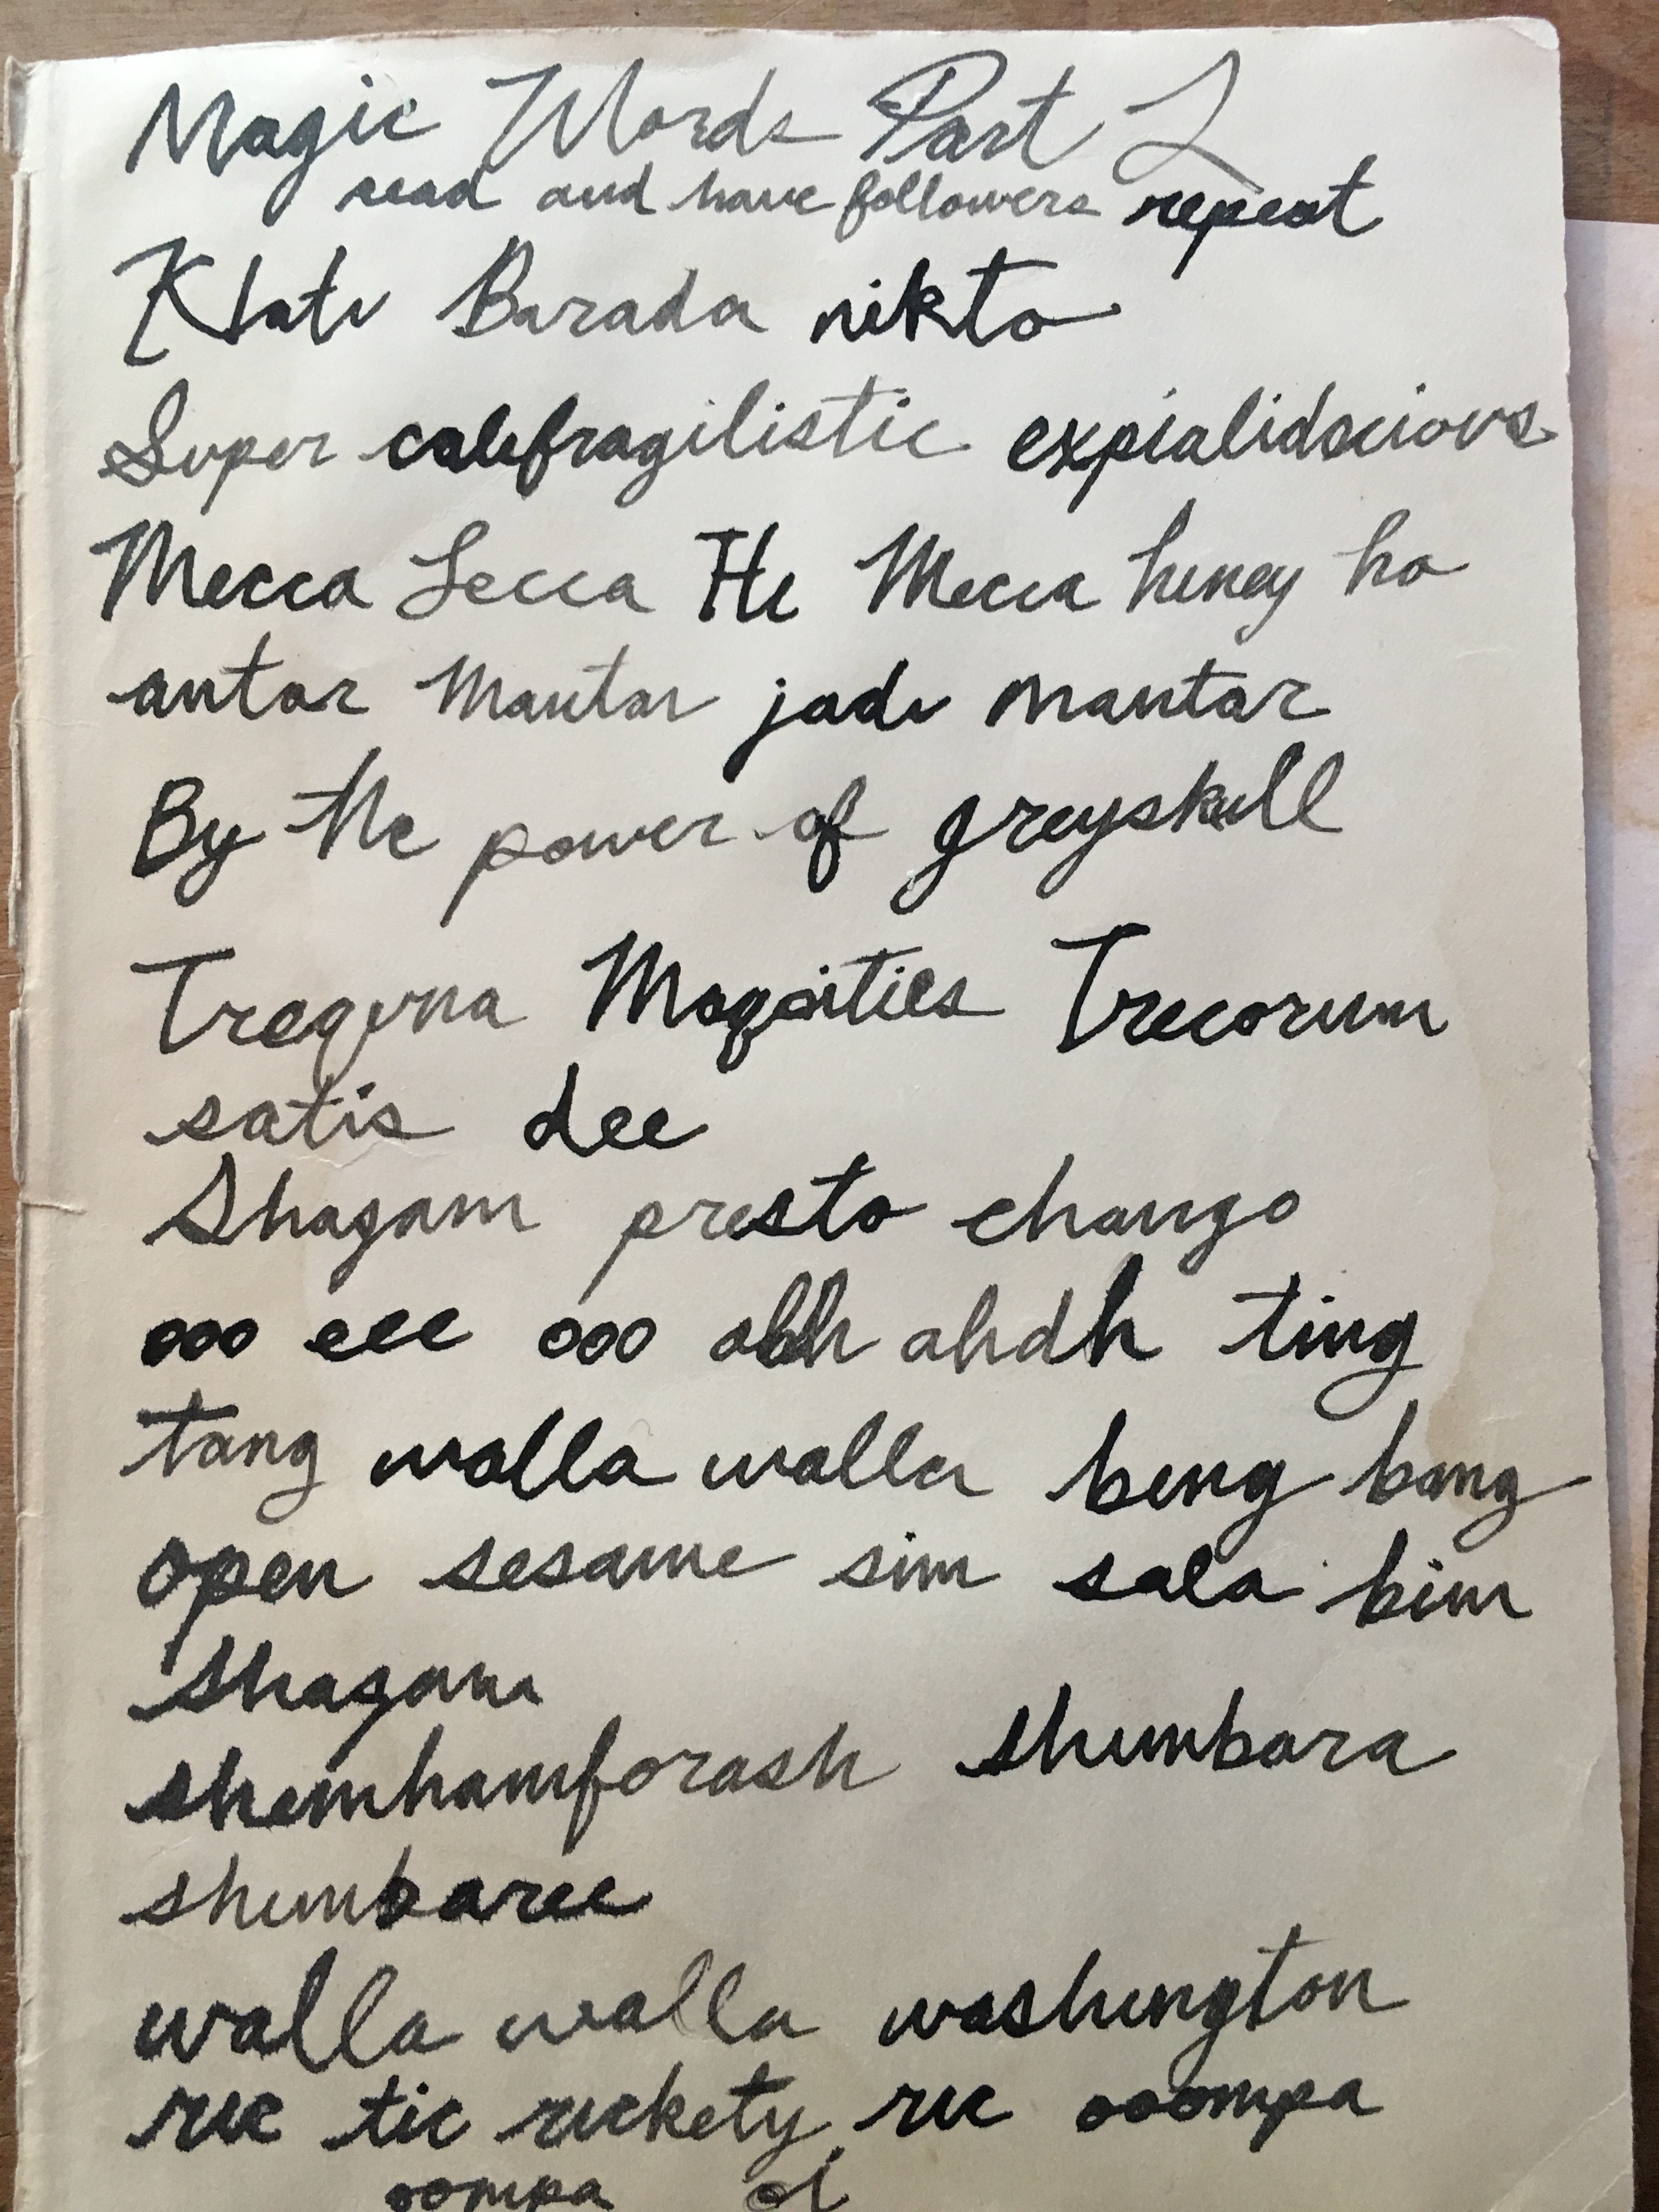 Magic Words Part 2
read and have followers repeat
Klatu Barada nikto
Super califragilistic expialidocious
Mecca Lecca Hi Mecca hiney ho
antar Mantar jadu mantar
By the power of greyskull
Treguna Mogoities Trecorum
satis dee
Shazam presto chango
ooo eee ooo ahh ahah ting
tang walla walla bing bang
open sesame sim sala bim
Shazam
shemhamforash shimbara
shimbaree
walla walla washington
ric tic rickety ric ooompa
oompa